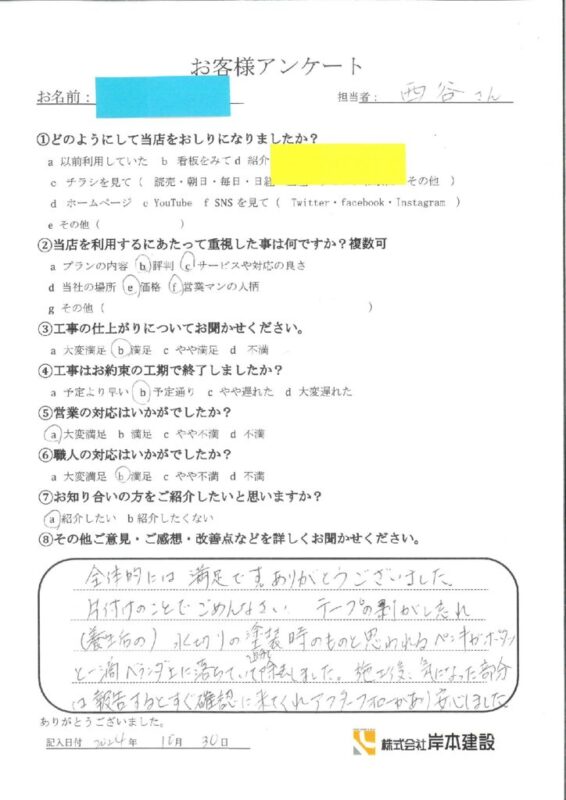 お客様アンケート
お名前：
担当者： 西谷さん
①どのようにして当店をおしりになりましたか？
a 以前利用していた b 看板をみて d 紹介
c チラシを見て（ 読売・朝日・毎日・日経 その他 ）
d ホームページ c YouTube f SNSを見て（ Twitter・facebook・Instagram ）
e その他（ ）
②当店を利用するにあたって重視した事は何ですか？複数可
a プランの内容 b 評判 c サービスや対応の良さ
d 当社の場所 e 価格 f 営業マンの人柄
g その他（ ）
③工事の仕上がりについてお聞かせください。
a 大変満足 b 満足 c やや満足 d 不満
④工事はお約束の工期で終了しましたか？
a 予定より早い b 予定通り c やや遅れた d 大変遅れた
⑤営業の対応はいかがでしたか？
a 大変満足 b 満足 c やや不満 d 不満
⑥職人の対応はいかがでしたか？
a 大変満足 b 満足 c やや不満 d 不満
⑦お知り合いの方をご紹介したいと思いますか？
a 紹介したい b 紹介したくない
⑧その他ご意見・ご感想・改善点などを詳しくお聞かせください。
全体的には 満足です。ありがとうございました。
片付けのことでごめんなさい テープの剥がし忘れ
（養生后の） 水切りの塗装時のものと思われるペンキがポターン
と一滴ベランダ上に落ちていて除去しました。施工後、気になった部分
は報告するとすぐ確認に来てくれアフターフォローがあり安心しました
ありがとうございました。
記入日付 2024年 10月 30日
株式会社岸本建設